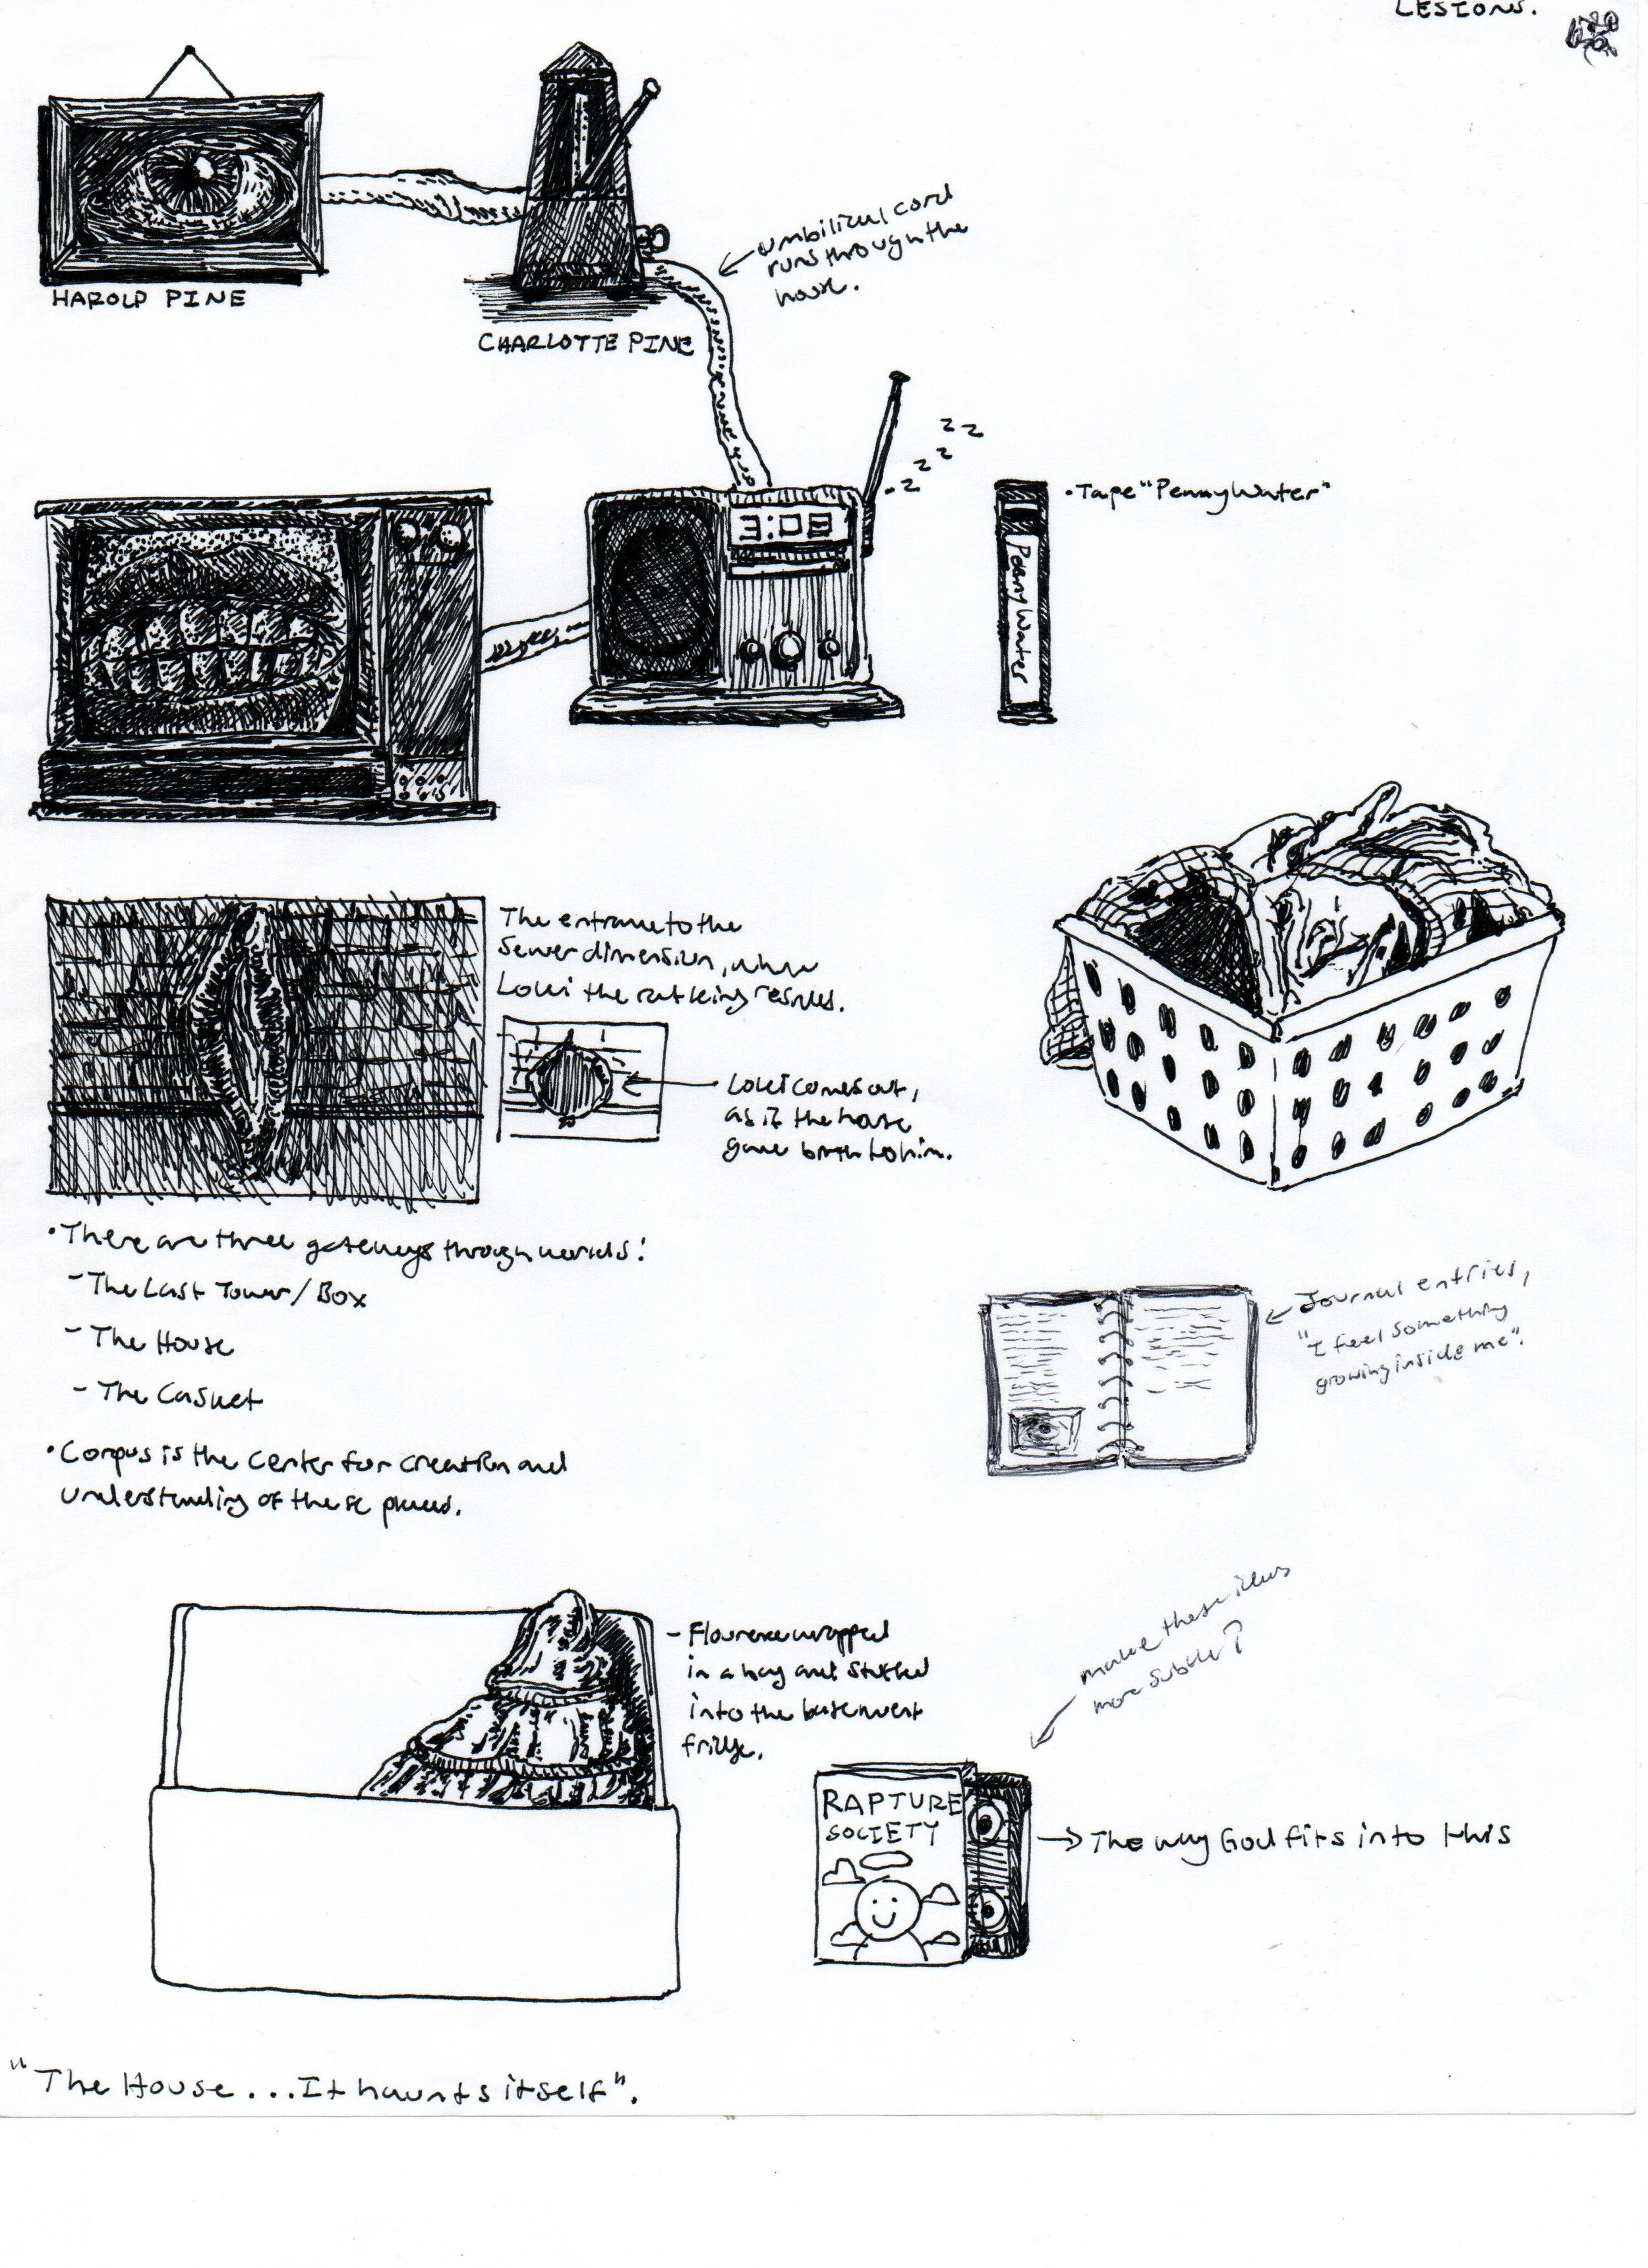 LESIONS.
HAROLD PINE
CHARLOTTE PINE
umbilical cord
runs through the
house.
z z
z z
-z
3:08
• Tape "PennyWater"
PennyWater
The entrance to the
Sewer dimension, where
Loki the rat king resides.
Loki comes out,
as if the house
gave birth to him.
• There are three gateways through worlds:
- The Last Tower/Box
- The House
- The Casket
• Corpus is the center for creation and
understanding of these places.
Journal entries,
"I feel something
growing inside me".
make these ideas
more subtle?
- Flourence wrapped
in a bag and stuffed
into the basement
fridge.
RAPTURE
SOCIETY
The way God fits into this
"The House...It haunts itself".